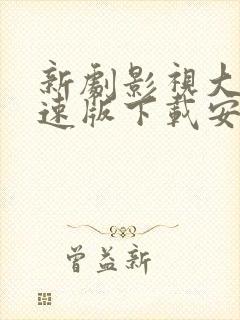 新劇影視大
速版下載安
曾益新